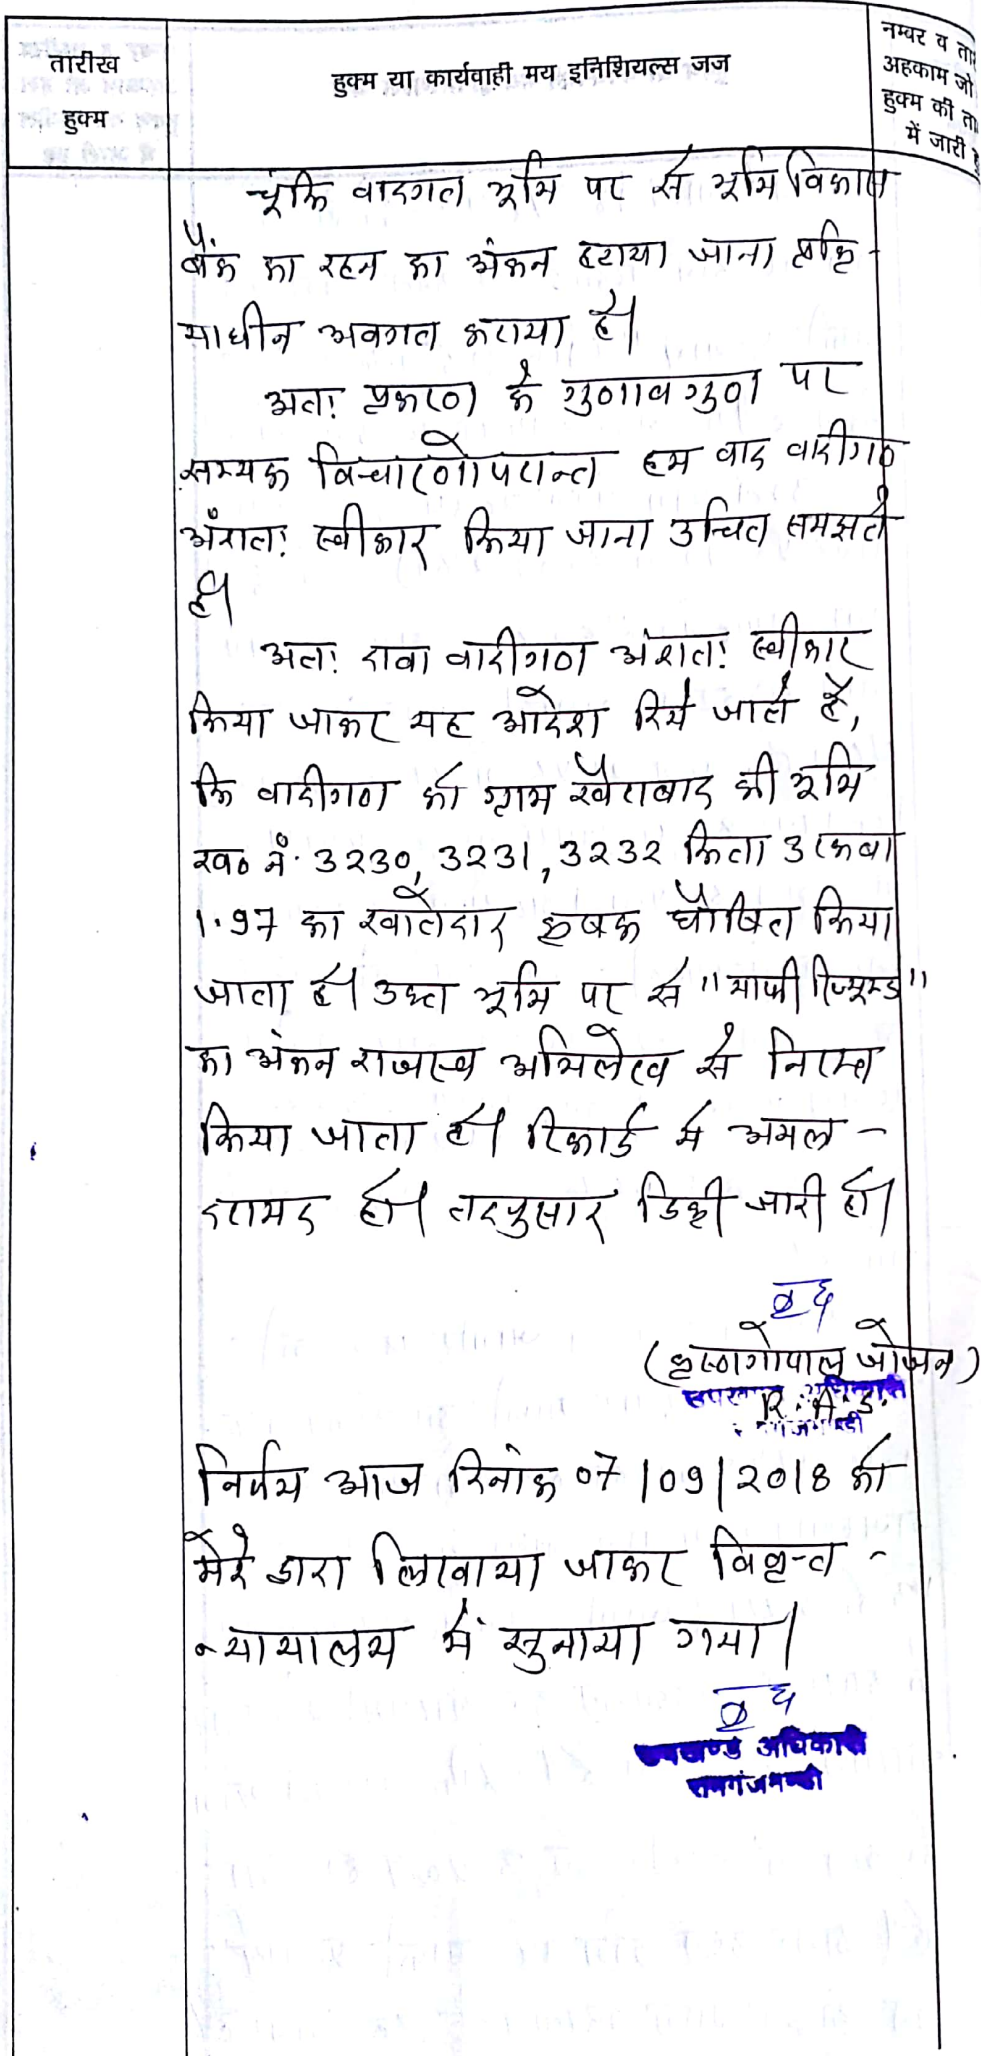 तारीख
हुक्म
हुक्म या कार्यवाही मय इनिशियल्स जज
नम्बर व
अहकाम जो
हुक्म की
में जारी
चूंकि वादगत भूमि पर से भूमि विकास
बैंक का रहन का अंकन हटाया जाना प्रक्रि-
याधीन अवगत कराया है।
अतः प्रकरण के गुणावगुण पर
सम्यक विचारणोपरान्त हम वाद वादीगण
अंशतः स्वीकार किया जाना उचित समझते
है।
अतः दावा वादीगण अंशतः स्वीकार
किया जाकर यह आदेश दिये जाते है,
कि वादीगण को ग्राम खैराबाद की भूमि
ख० नं. 3230, 3231, 3232 किता 3 रकबा
1.97 का खातेदार कृषक घोषित किया
जाता है। उक्त भूमि पर से "माफी रिज्यूम्ड"
का अंकन राजस्व अभिलेख से निरस्त
किया जाता है। रिकार्ड में अमल -
दरामद हो। तदनुसार डिक्री जारी हो।
(कृष्णगोपाल जोजन)
उपखण्ड अधिकारी
R.A.S.
निर्णय आज दिनांक 07/09/2018 को
मेरे द्वारा लिखाया जाकर विवृत -
न्यायालय में सुनाया गया।
उपखण्ड अधिकारी
रामगंजमण्डी